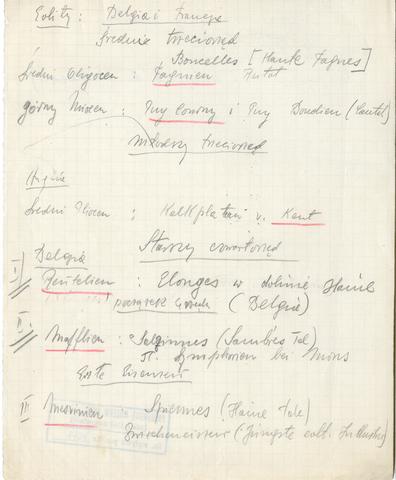 Eolity : Belgia i Francja
Średnie trzeciorzęd
Boncelles [Hault Fagnes]
Średni Oligocen : Fagnien
górny Miocen : Puy Courny i Puy Boudieu (Cantal)
młodszy trzeciorzęd
Anglia
Średni Pliocen : Kalkplateau v. Kent
Starszy czwartorzęd
Belgia
I) Reutelien : Elonges w dolinie Haine
początek (Belgia)
II Mafflien : Salzinnes (Sambres Tal)
St. Symphorien bei Mons
Erste Eiszeit
III Mesvinien Spiennes (Haine Tale)
Zwischeneiszeit (Jüngste eolit. Industrie)